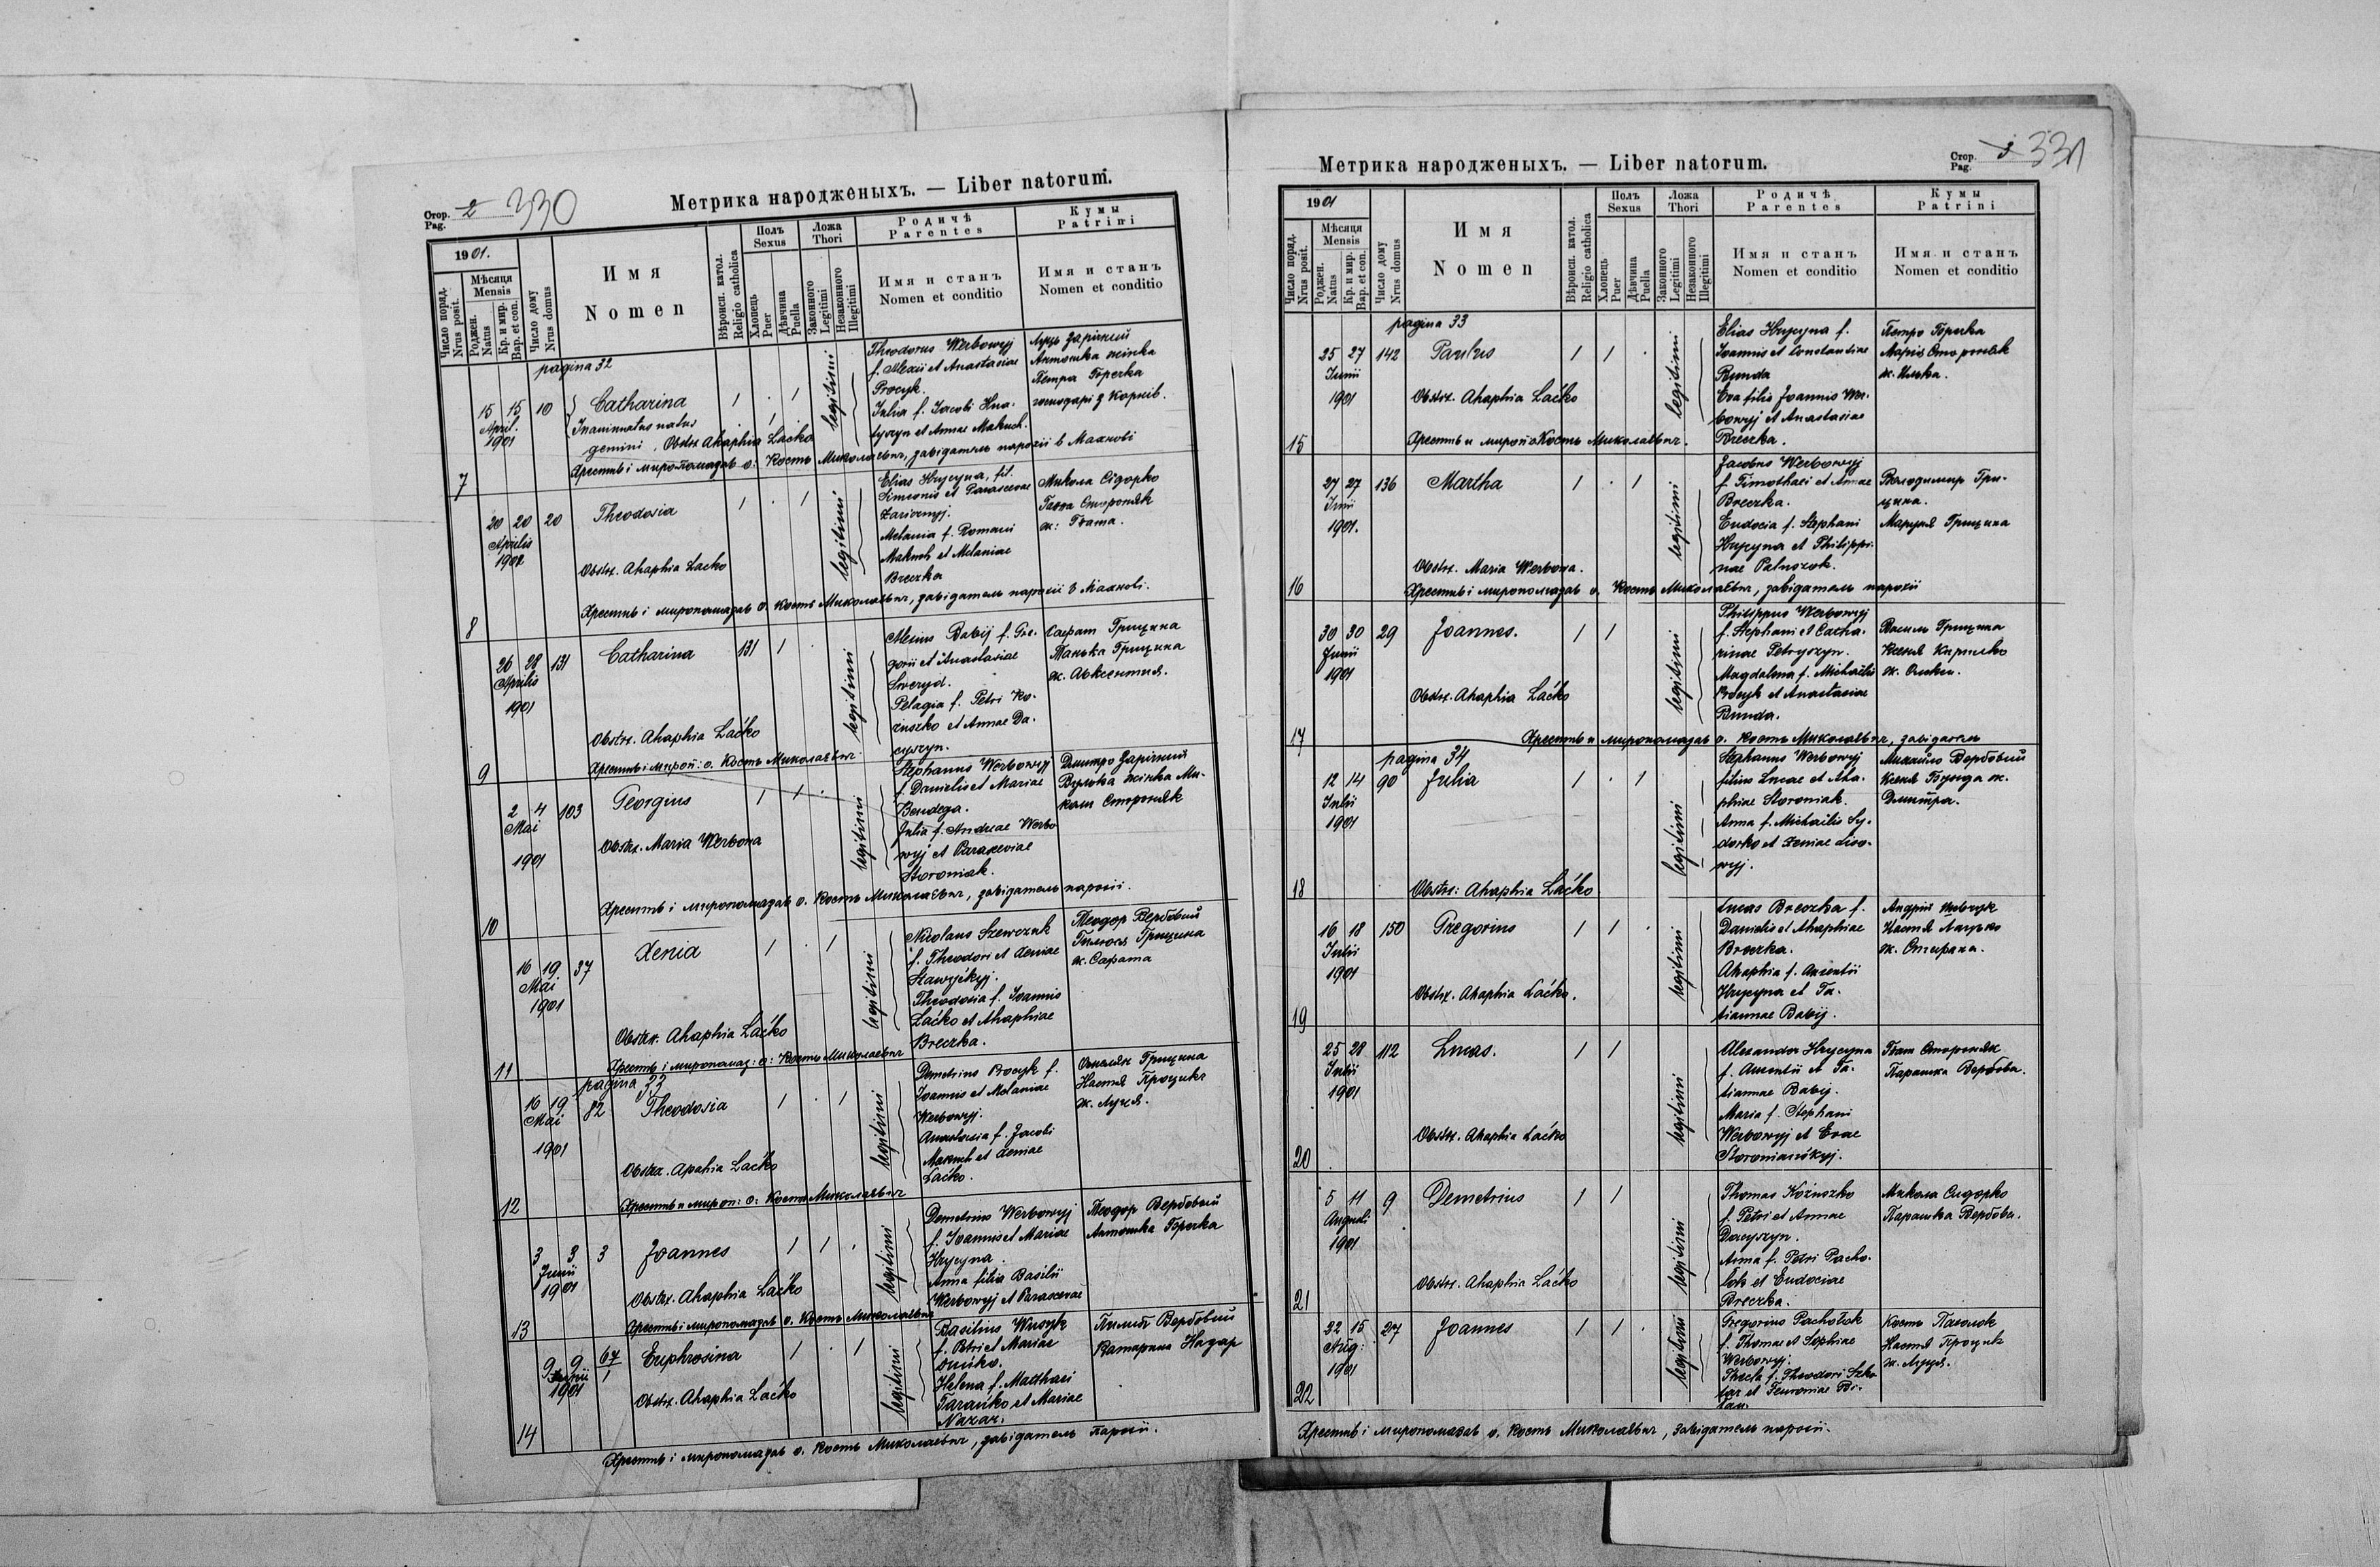 Стор. Pag. 2 330
Метрика народженыхъ. — Liber natorum.
1901.
Число поряд. Nrus posit.
Мѣсяця Mensis
Роджен. Natus
Кр. и мир. Bap. et con.
Число дому Nrus domus
Имя
Nomen
Вѣроисп. катол. Religio catholica
Полъ Sexus
Хлопець Puer
Дѣвчина Puella
Ложа Thori
Законного Legitimi
Незаконного Illegitimi
Родичѣ Parentes
Имя и станъ
Nomen et conditio
Кумы Patrini
Имя и станъ
Nomen et conditio
pagina 32
7
15 15 10 Catharina 1 . 1 legitimi
April.
1901
Inanimatus natus
gemini. Obstr. Ahaphia Lacko
Theodorus Werbowyj
f. Alexii et Anastasiae
Procyk.
Julia f. Jacobi Hna-
tyszyn et Annae Makuch.
Луць Зарічний
Антошка жінка
Петра Горечка
господарі з Корнів.
Хрестив і миропомазав о: Кость Миколаєвич, завідатель парохії в Махнові
8
20 20 20 Theodosia 1 . 1 legitimi
Aprilis
1901
Obstr. Ahaphia Lacko
Elias Hrycyna, fil.
Simeonis et Parascevae
Zaricznyj.
Melania f. Romani
Makuch et Melaniae
Breczka
Микола Сідорко
Стороняк
ж: Івана.
Хрестив і миропомазав о. Кость Миколаєвич, завідатель парохії в Махнові.
9
26 28 131 Catharina 131 1 . legitimi
Aprilis
1901
Obstr. Ahaphia Lacko
Alexius Babij f. Gre-
gorii et Anastasiae
Sweryd.
Pelagia f. Petri Ko-
ziuszko et Annae Da-
cyszyn.
Сафат Грицина
Танька Грицина
ж. Авксентия.
Хрестив і мироп: о. Кость Миколаєвич
10
2 4 103 Georgius 1 1 . legitimi
Mai
1901
Obstr. Maria Werbowa
Stephanus Werbowyj
f. Danielis et Mariae
Bendega.
Julia f. Andreae Werbo
wyj et Parasceviae
Storoniak.
Дмитро Зарічний
жінка Ми-
коли Стороняк
Хрестив і миропомазав о. Кость Миколаєвич, завідатель парохії.
11
16 19 37 Xenia 1 . 1 legitimi
Mai
1901
Obstr. Ahaphia Lacko
Nicolaus Szewczuk
f. Theodori et Xeniae
Theodosia f. Joannis
Lacko et Ahaphiae
Breczka.
Теодор Вербовий
Грицина
ж. Сафата
Хрестив і миропомаз: о: Кость Миколаєвич
pagina 33
12
16 19 82 Theodosia 1 . 1 legitimi
Mai
1901
Obstr. Apahia Lacko
Demetrius Procyk f.
Joannis et Melaniae
Werbowyj.
Anastasia f. Jacobi
Makuch et Xeniae
Lacko.
Омелян Грицина
Настя Процик
ж. Луця.
Хрестив и мироп: о: Кость Миколаєвич
13
3 3 3 Joannes 1 1 . legitimi
Junii
1901
Obstr. Ahaphia Lacko
Demetrius Werbowyj
f. Joannis et Mariae
Hrycyna.
Anna filia Basilii
Werbowyj et Parascevae
Теодор Вербовый
Антошка Горечка
Хрестив і миропомазав о. Кость Миколаєвич
14
9 9 67/1 Euphrosina 1 . 1 legitimi
Junii
1901
Obstr. Ahaphia Lacko
Basilius
f. Petri et Mariae
Helena f. Matthaei
Taranko et Mariae
Nazar.
Пилип Вербовий
Катарина Назар
Хрестив і миропомазав о. Кость Миколаєвич, завідатель парохії.
Стор. Pag. 3 331
Метрика народженыхъ. — Liber natorum.
1901
Число поряд. Nrus posit.
Мѣсяця Mensis
Роджен. Natus
Кр. и мир. Bap. et con.
Число дому Nrus domus
Имя
Nomen
Вѣроисп. катол. Religio catholica
Полъ Sexus
Хлопець Puer
Дѣвчина Puella
Ложа Thori
Законного Legitimi
Незаконного Illegitimi
Родичѣ Parentes
Имя и станъ
Nomen et conditio
Кумы Patrini
Имя и станъ
Nomen et conditio
pagina 33
15
25 27 142 Paulus 1 1 . legitimi
Junii
1901
Obstr. Ahaphia Lacko
Elias Hrycyna f.
Joannis et Constantiae
Bunda
Eva filia Joannis Wer-
bowyj et Anastasiae
Breczka.
Петро Горечка
Марія Стороняк
ж. Илька.
Хрестив и мироп о Кость Миколаєвич.
16
27 27 136 Martha 1 . 1 legitimi
Junii
1901.
Obstr. Maria Werbowa.
Jacobus Werbowyj
f. Timothaei et Annae
Breczka.
Eudocia f. Stephani
Hrycyna et Philippi-
nae
Володимир Гри-
цина.
Маруня Грицина
Хрестив і миропомазав о. Кость Миколаєвич, завідатель парохії
17
30 30 29 Joannes. 1 1 legitimi
Junii
1901
Obstr. Ahaphia Lacko
Philippus Werbowyj
f. Stephani et Catha-
rinae Petryszyn.
Magdalena f. Michaelis
Procyk et Anastasiae
Bunda.
Василь Грицина
Ксеня
ж.
Хрестив и миропомазав о. Кость Миколаєвич, завідатель
pagina 34
18
12 14 90 Julia 1 . 1 legitimi
Julii
1901
Obstr: Ahaphia Lacko
Stephanus Werbowyj
filius Lucae et Aha-
phiae Storoniak.
Anna f. Michaelis Sy-
dorko et Xeniae
wyj.
Михайло Вербовий
Ксеня Бунда ж.
Дмитра.
19
16 18 150 Gregorius 1 1 . legitimi
Julii
1901
Obstr. Ahaphia Lacko.
Lucas Breczka f.
Danielis et Ahaphiae
Breczka.
Ahaphia f. Auxentii
Hrycyna et Ta-
tiannae Babij.
Андрій
Настя Лацько
ж.
20
25 28 112 Lucas. 1 1 legitimi
Julii
1901
Obstr. Ahaphia Lacko
Alexander Hrycyna
f. Auxentii et Ta-
tiannae Babij.
Maria f. Stephani
Werbowyj et Evae
Іван Стороняк
Парашка Вербова.
21
5 11 9 Demetrius 1 1 legitimi
Augusti
1901
Obstr. Ahaphia Lacko
Thomas Koziuszko
f. Petri et Annae
Dacyszyn.
Anna f. Petri Pacho-
lok et Eudociae
Breczka.
Микола Сидорко
Парашка Вербова.
22
15 27 Joannes 1 1 . legitimi
Aug:
1901
Gregorius Pacholok
f. Thomae et Sophiae
Werbowyj.
Thecla f. Theodori
Кость Пахолок
Настя Процик
ж. Луця.
Хрестив і миропомазав о. Кость Миколаєвич, завідатель парохії.